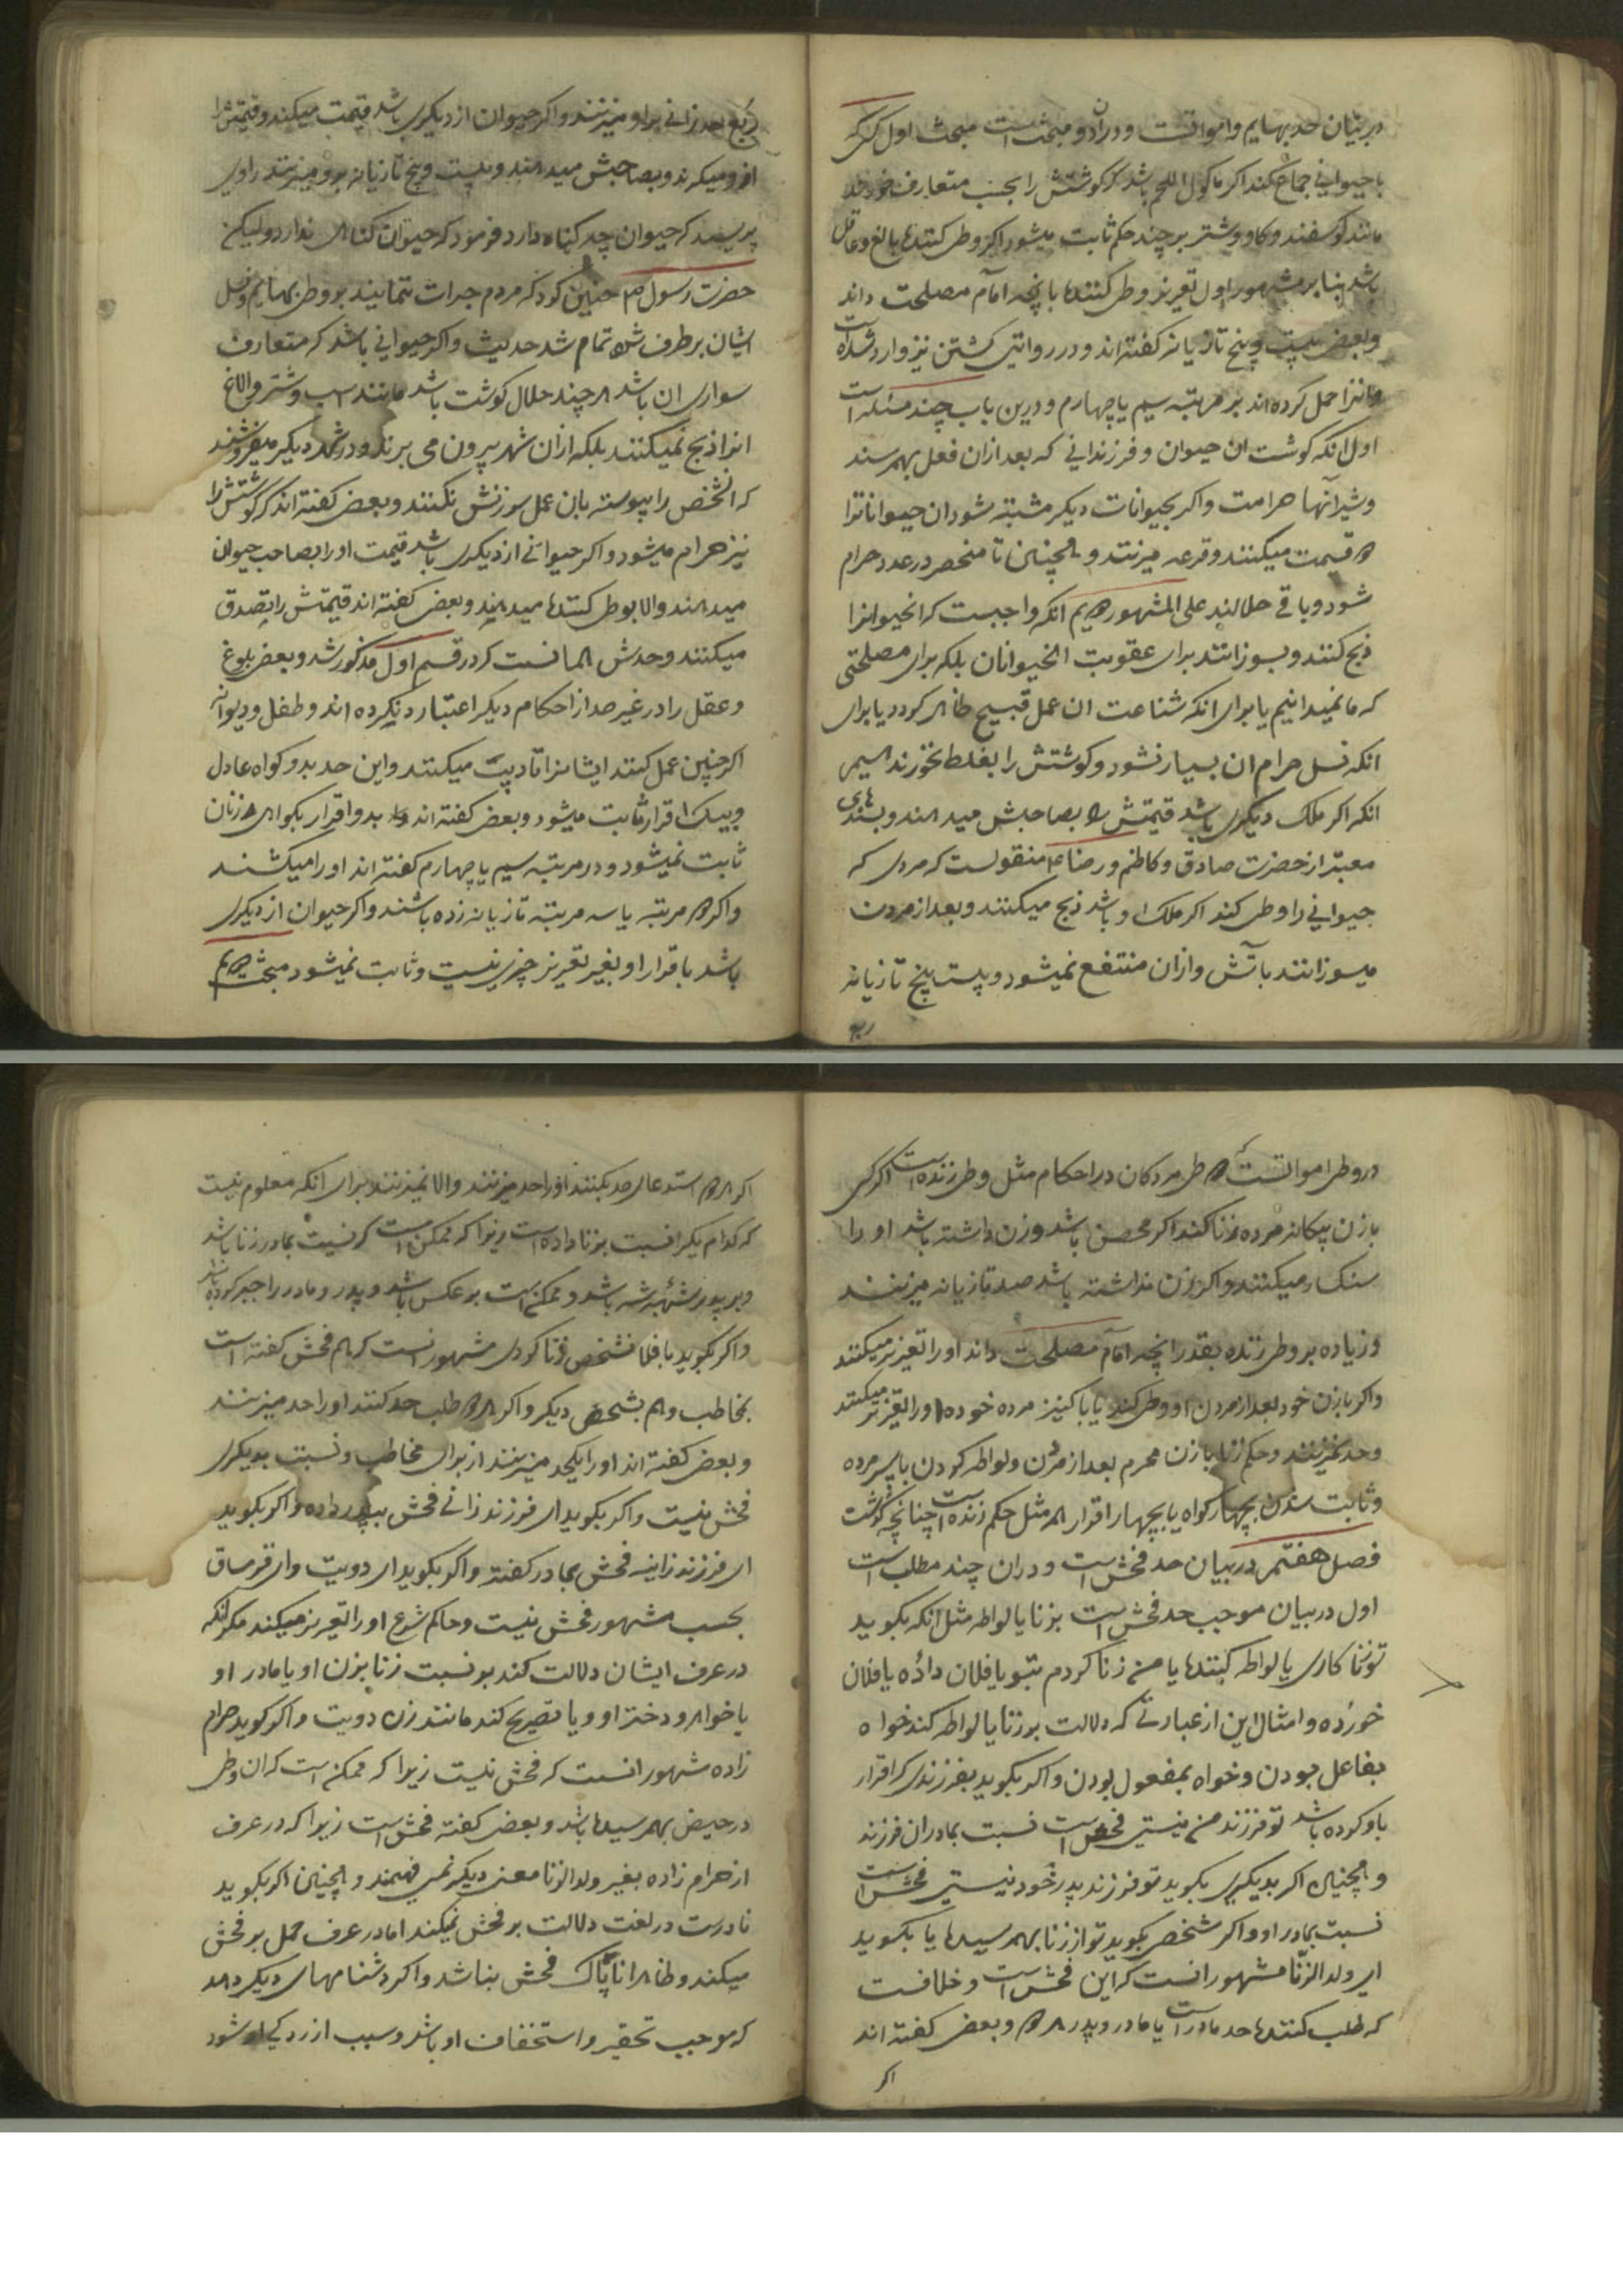 در بیان حد بهایم و امواتست و در آن دو مبحث است مبحث اول کسی که
با حیوانی جماع کند اکر ماکول اللحم باشد که کوشتش را بحسب متعارف خورند
مانند کوسفند و کاو و شتر بر چند حکم ثابت میشود اکر وطی کننده بالغ و عاقل
باشد بنابر مشهور اول تعزیر وطی کننده بانچه امام مصلحت داند
و بعضی بیست و پنج تازیانه کفته اند و در روایتی کشتن نیز وارد شده است
و انرا حمل کرده اند بر مرتبه سیم یا چهارم و درین باب چند مسئله است
اول انکه کوشت ان حیوان و فرزندانی که بعد ازان فعل بهم رسند
و شیر آنها حرامت و اکر بحیوانات دیکر مشتبه شود ان حیوانانرا
دو قیمت میکنند و قرعه میزنند و همچنین تا منحصر در عدد حرام
شود و باقی حلالند علی المشهور دویم انکه واجبست که انحیوانرا
ذبح کنند و بسوزانند برای عقوبت انحیوانان بلکه برای مصلحتی
که ما نمیدانیم یا برای انکه شناعت ان عمل قبیح ظاهر کردد یا برای
انکه نسل حرام ان بسیار نشود و کوشتش را بغلط نخورند سیم
انکه اکر ملک دیکری باشد قیمتش را بصاحبش میدهند و بسندهای
معتبر از حضرت صادق و کاظم و رضا ع منقولست که مردی که
حیوانی را وطی کند اکر ملک او باشد ذبح میکنند و بعد از مردن
میسوزانند باتش و ازان منتفع نمیشود و بیست پنج تازیانه
ربع
ربع حد زانی بر او میزنند و اکر حیوان از دیکری باشد قیمت میکنند و قیمتش را
ازو میکیرند و بصاحبش میدهند و بیست و پنج تازیانه برو میزنند راوی
پرسید که حیوان چه کناه دارد فرمود که حیوان کناهی ندارد ولیکن
حضرت رسول ص چنین کرد که مردم جرات ننمایند بر وطی بهایم و نسل
ایشان برطرف شود تمام شد حدیث و اکر حیوانی باشد که متعارف
سواری ان باشد هر چند حلال کوشت باشد مانند اسب و شتر و الاغ
انرا ذبح نمیکنند بلکه ازان شهر بیرون می برند و در شهر دیکر میفروشند
که انشخص را پیوسته بان عمل سرزنش نکنند و بعضی کفته اند که کوشتش را
نیز حرام میشود و اکر حیوانی از دیکری باشد قیمت او را بصاحب حیوان
میدهند و الا بوطی کننده میدهند و بعضی کفته اند قیمتش را تصدق
میکنند و حدش همانست که در قسم اول مذکور شد و بعضی بلوغ
و عقل را در غیر حد از احکام دیکر اعتبار نکرده اند و طفل و دیوانه
اکر چنین عمل کنند ایشانرا تادیب میکنند و این حد بدو کواه عادل
و بیک اقرار ثابت میشود و بعضی کفته اند بدو اقرار بکواهی زنان
ثابت نمیشود و در مرتبه سیم یا چهارم کفته اند او را میکشند
و اکر دو مرتبه یا سه مرتبه تازیانه زده باشند و اکر حیوان از دیکری
باشد باقرار او بغیر تعزیر چیزی نیست و ثابت نمیشود مبحث دویم
در وطی امواتست وطی مردکان در احکام مثل وطی زنده است اکر کسی
با زن بیکانه مرده زنا کند اکر محصن باشد و زن داشته باشد او را
سنکسار میکنند و اکر زن نداشته باشد صد تازیانه میزنند
و زیاده بر وطی زنده بقدر انچه امام مصلحت داند او را تعزیر میکنند
و اکر با زن خود بعد از مردن او وطی کند یا با کنیز مرده خود او را تعزیر میکنند
و حد نمیزنند و حکم زنا با زن محرم بعد از مردن و لواطه کردن با پسر مرده
و ثابت شدن بچهار کواه یا بچهار اقرار همه مثل حکم زنده است چنانچه کذشت
فصل هفتم در بیان حد فحش است و در ان چند مطلب است
اول در بیان موجب حد فحش است بزنا یا لواطه مثل انکه بکوید
تو زنا کاری یا لواطه کننده یا من زنا کردم بتو یا فلان داده یا فلان
خورده و امثال این از عباراتی که دلالت بر زنا یا لواطه کند خواه
بفاعل بودن و خواه بمفعول بودن و اکر بکوید بفرزندی که اقرار
باو کرده باشد تو فرزند من نیستی فحش است نسبت بمادر ان فرزند
و همچنین اکر بدیکری بکوید تو فرزند پدر خود نیستی فحش است
نسبت بمادر او و اکر شخصی بکوید تو از زنا بهم رسیده یا بکوید
ای ولد الزنا مشهور انست که این فحش است و خلافست
که طلب کننده حد مادر است یا مادر و پدر هر دو و بعضی کفته اند
اکر
اکر هر دو استدعای حد بکنند او را حد میزنند و الا نمیزنند برای انکه معلوم نیست
که کدام یک را نسبت بزنا داده است زیرا که ممکن است که نسبت بمادر زنا باشد
و بر پدر شبهه باشد و ممکن است بر عکس باشد و پدر و مادر را جبر کرده باشند
و اکر بکوید با فلانشخص زنا کردی مشهور انست که هم فحش کفته است
بمخاطب و هم بشخص دیکر و اکر هر دو طلب حد کنند او را حد میزنند
و بعضی کفته اند او را یکحد میزنند از برای مخاطب و نسبت بدیکری
فحش نیست و اکر بکوید ای فرزند زانی فحش بپدر داده و اکر بکوید
ای فرزند زانیه فحش بمادر کفته و اکر بکوید ای دویت و ای قرمساق
بحسب مشهور فحش نیست و حاکم شرع او را تعزیر میکند مکر انکه
در عرف ایشان دلالت کند بر نسبت زنا بزن او یا مادر او
یا خواهر و دختر او و یا تصریح کند مانند زن دویت و اکر کوید حرام
زاده مشهور انست که فحش نیست زیرا که ممکن است که ان وطی
در حیض بهم رسیده باشد و بعضی کفته فحش است زیرا که در عرف
از حرام زاده بغیر ولد الزنا معنی دیکر نمی فهمند و همچنین اکر بکوید
نادرست در لغت دلالت بر فحش نمیکند اما در عرف حمل بر فحش
میکنند و ظاهرا ناپاک فحش نباشد و اکر دشنامهای دیکر دهد
که موجب تحقیر و استخفاف او باشد و سبب ازردکی او شود